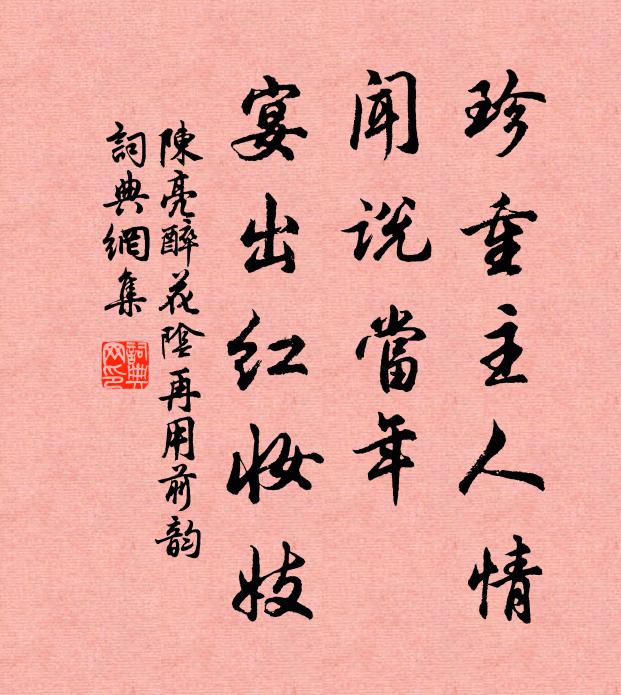 珍重主人情
聞説當年
宴出红妝妓
陳亮醉花陰再用前韵
詞典網集
詞典网印